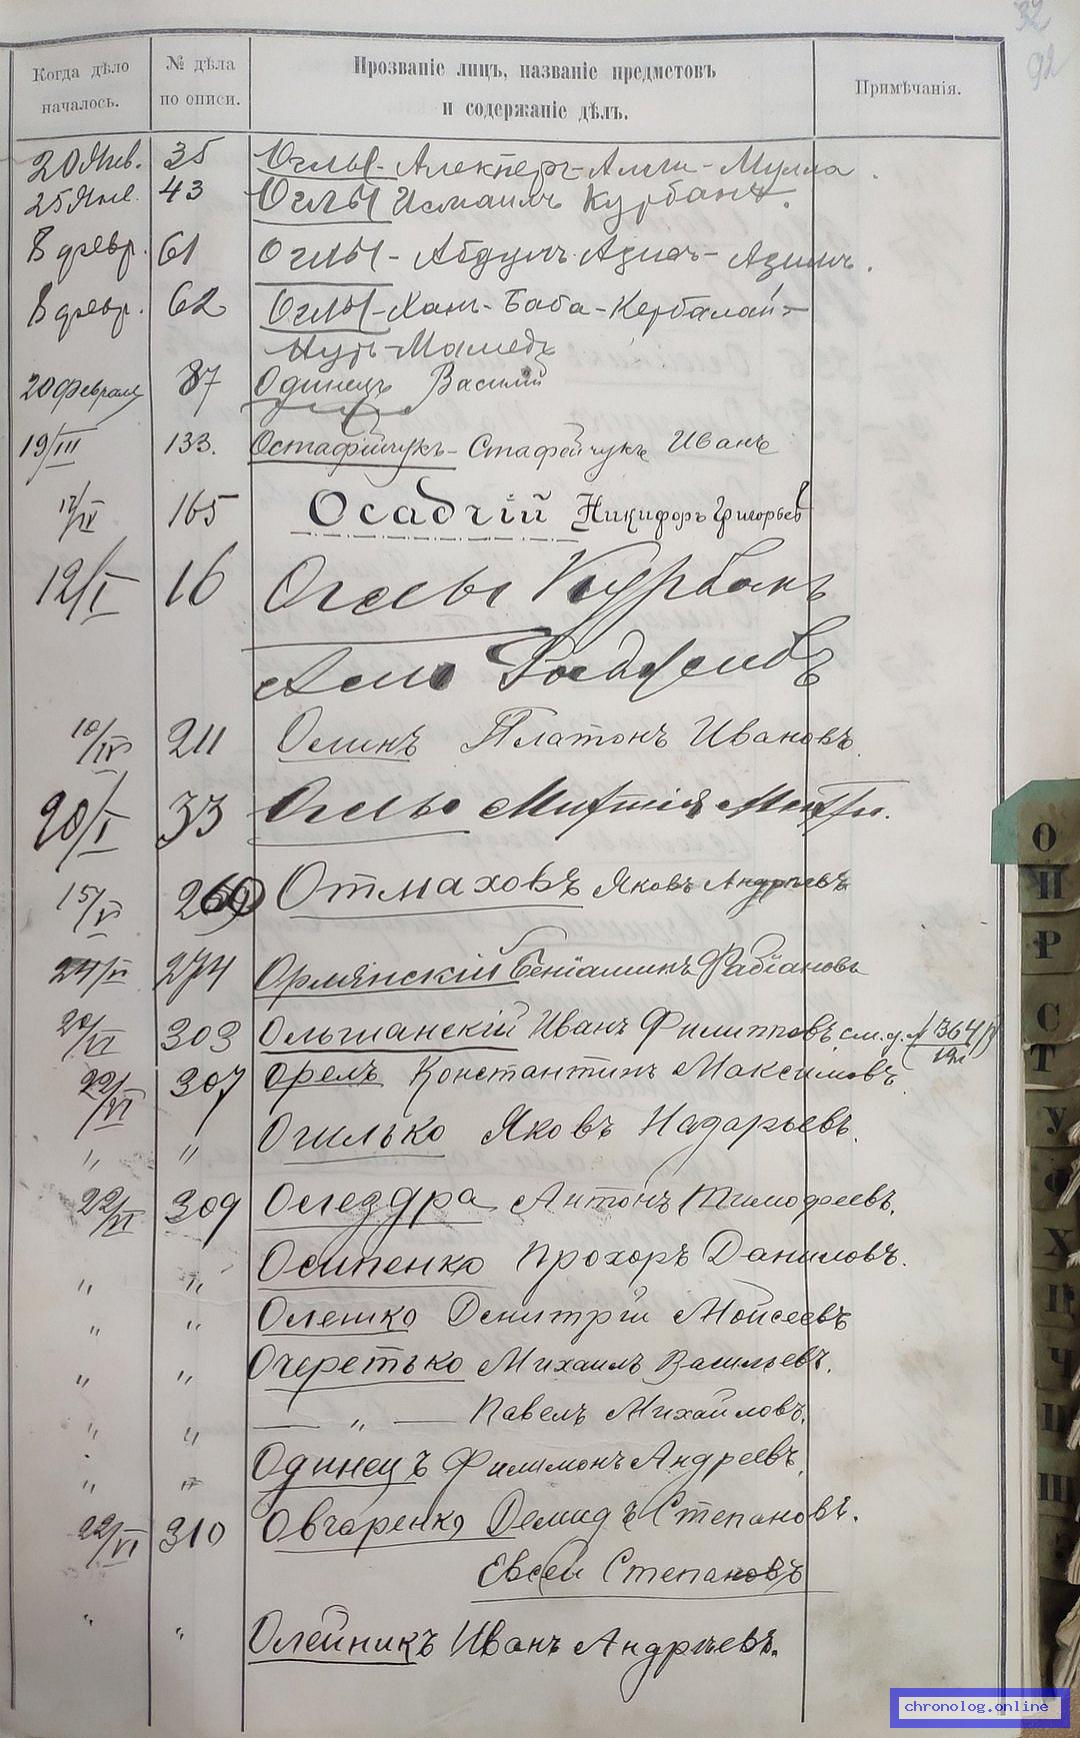 32
92
Когда дѣло началось. № дѣла по описи. Прозваніе лицъ, названіе предметовъ и содержаніе дѣлъ. Примѣчанія.
20 Янв. 35 Оглы-Алекперъ-Алли-Мулла.
25 Янв. 43 Оглы Исмаилъ Курбанъ.
8 февр. 61 Оглы-Абдулъ-Азисъ-Азимъ.
8 февр. 62 Оглы-Ханъ-Баба-Кербалай-
Нуръ-Мамедъ
20 Февраля 87 Одинецъ Василій
19/III 133. Остафійчукъ-Стафейчукъ Иванъ
12/IV 165 Осадчій Никифоръ Григорьевъ
12/I 16 Оглы Курбанъ
10/IV 211 Олинъ Платонъ Ивановъ.
20/I 33 Оглы
15/V 260 Отмаховъ Яковъ Андреевъ
24/VI 274 Орлянскій Беніаминъ Фабіановъ
20/VI 303 Ольшанскій Иванъ Филипповъ, см. д. № 364
22/VI 307 Орелъ Константинъ Максимовъ
" " Огилько Яковъ Назарьевъ.
22/VI 309 Олездра Антонъ Тимофеевъ.
" " Осипенко Прохоръ Даниловъ.
" " Олешко Дмитрій Моисеевъ
" " Очеретько Михаилъ Васильевъ.
" " — " — Павелъ Михайловъ.
" " Одинецъ Филимонъ Андреевъ.
22/VI 310 Овчаренко Демидъ Степановъ.
Евсей Степановъ
" " Олейникъ Иванъ Андреевъ.
О
П
Р
С
Т
У
Ф
Х
Ц
Ч
Ш
chronolog.online